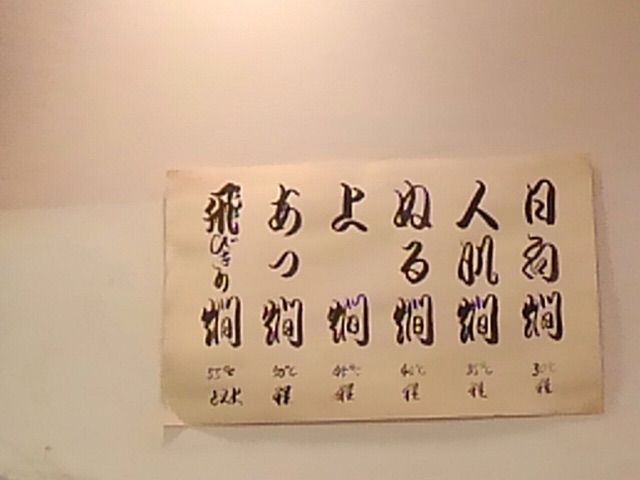 日向燗 30℃ 程
人肌燗 35℃ 程
ぬる燗 40℃ 程
上燗 45℃ 程
あつ燗 50℃ 程
飛びきり燗 55℃ 以上